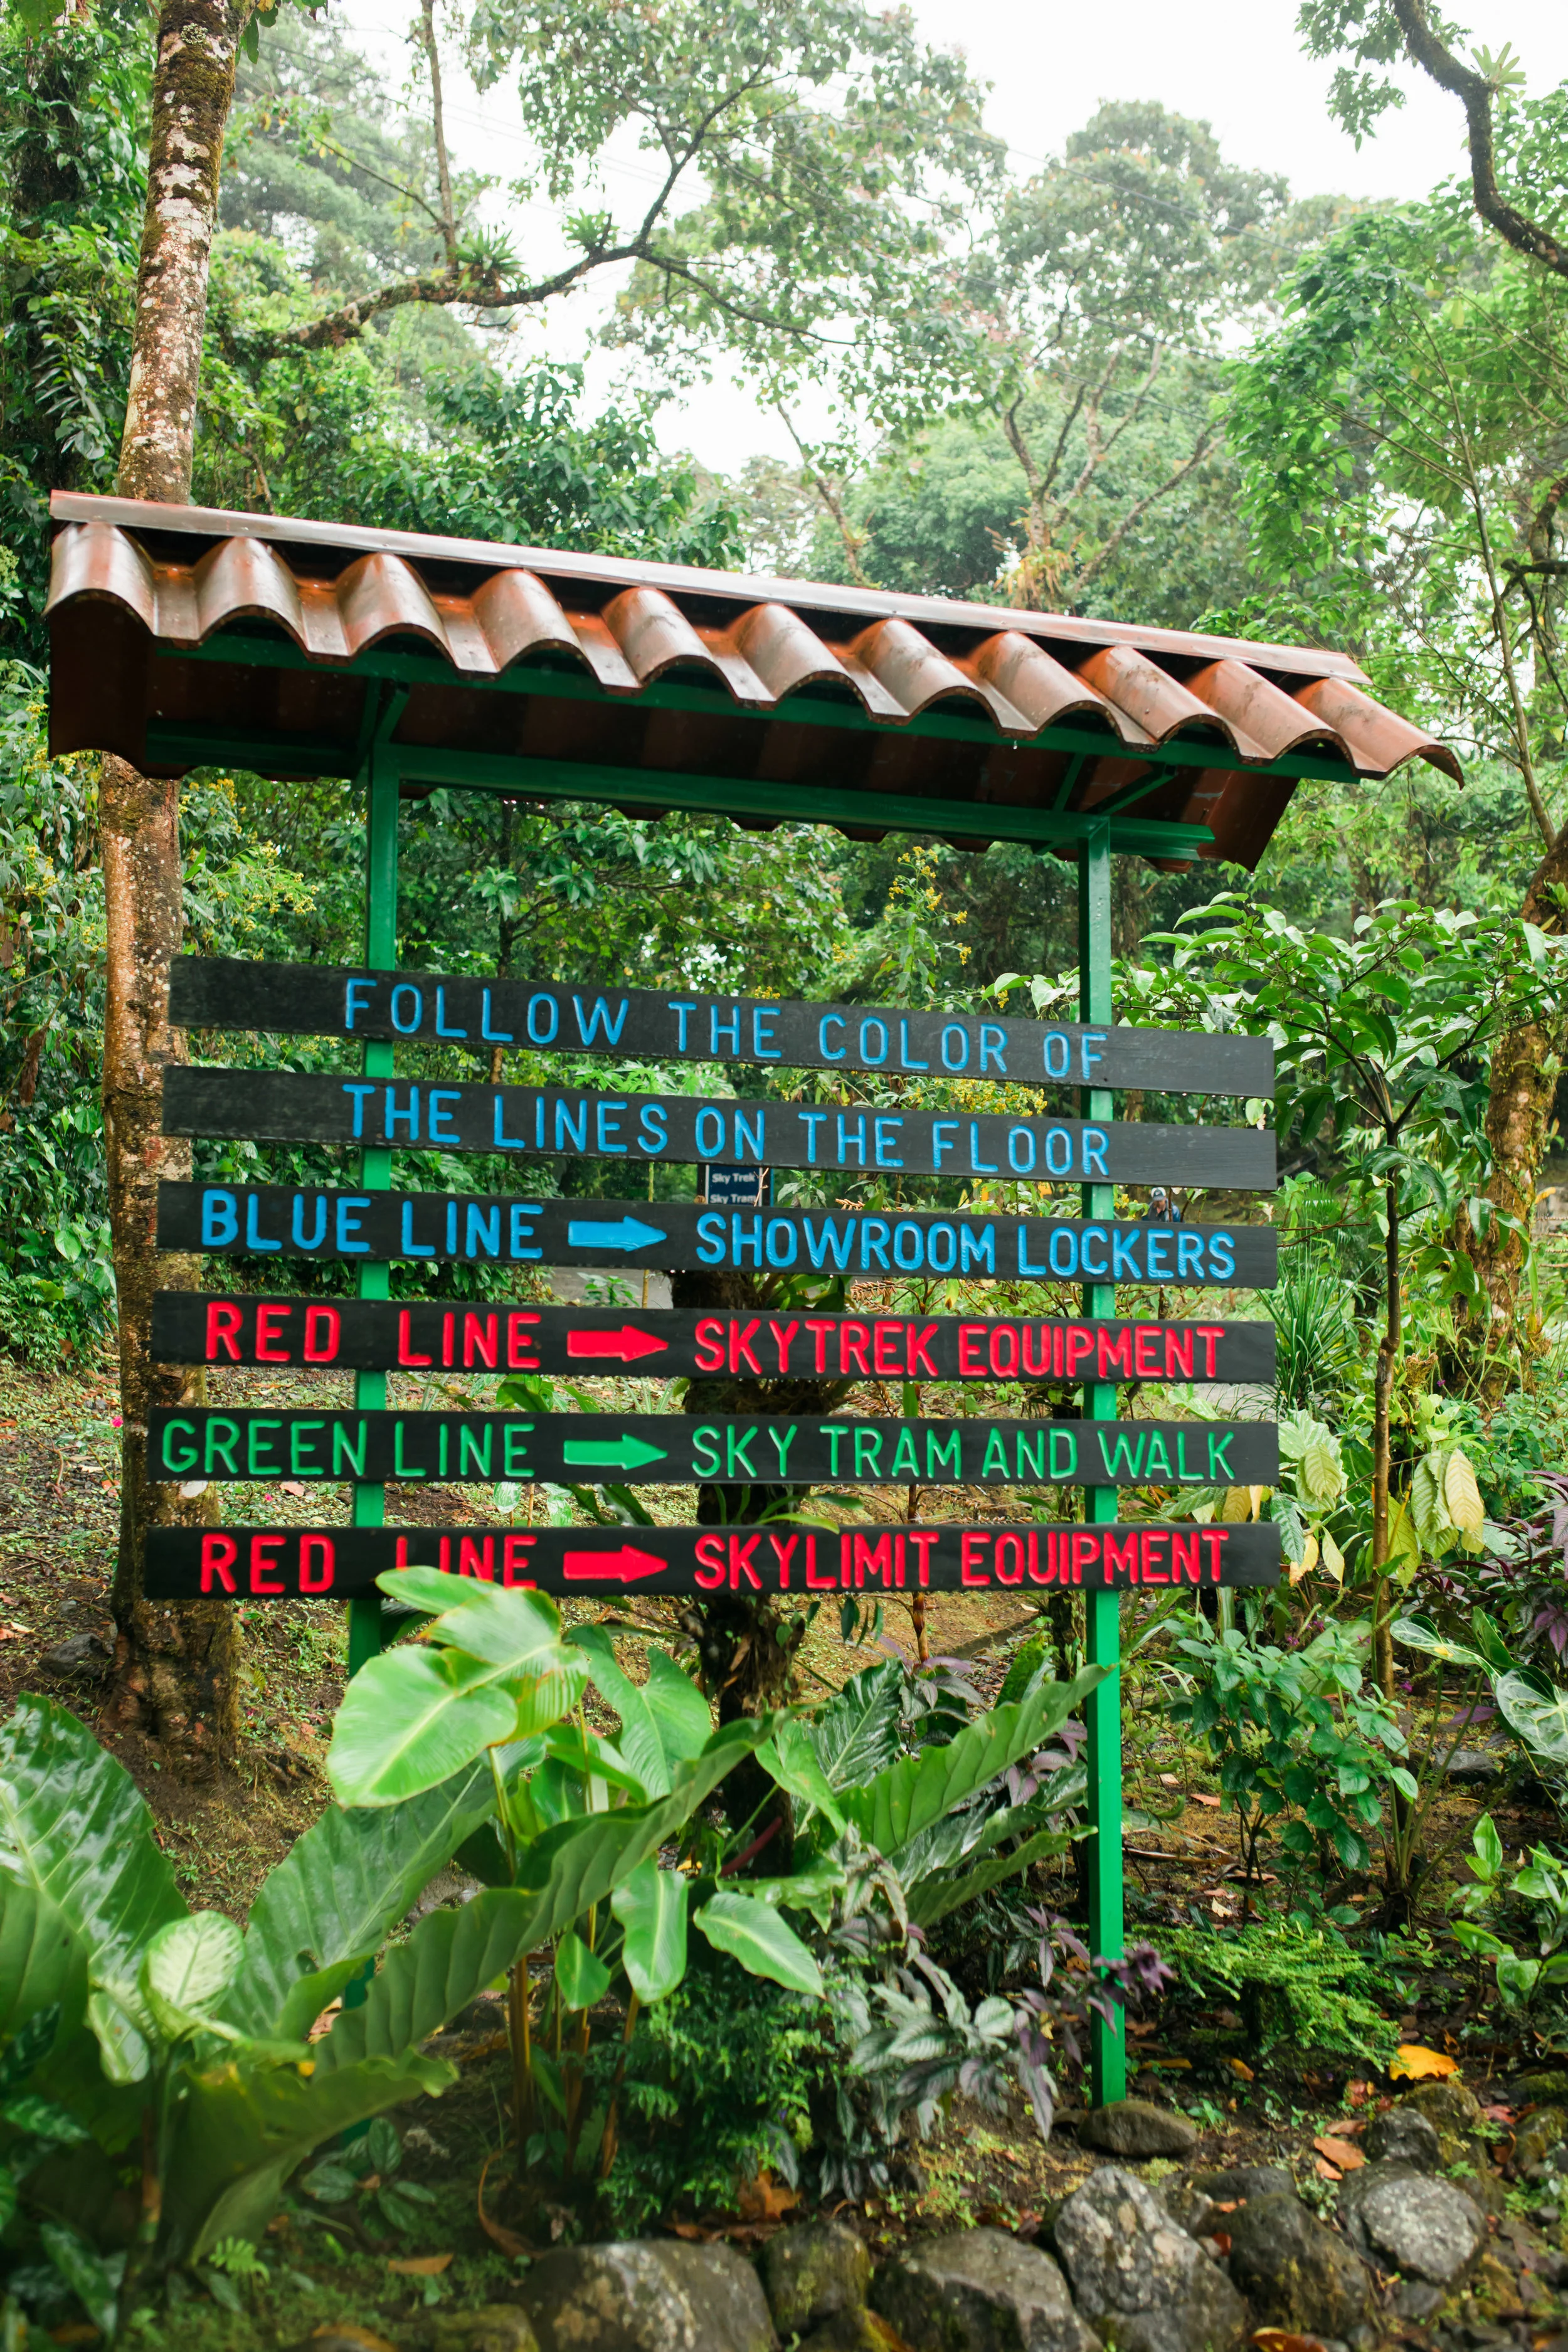 FOLLOW THE COLOR OF
THE LINES ON THE FLOOR
Sky Trek
Sky Tram
BLUE LINE SHOWROOM LOCKERS
RED LINE SKYTREK EQUIPMENT
GREEN LINE SKY TRAM AND WALK
RED LINE SKYLIMIT EQUIPMENT